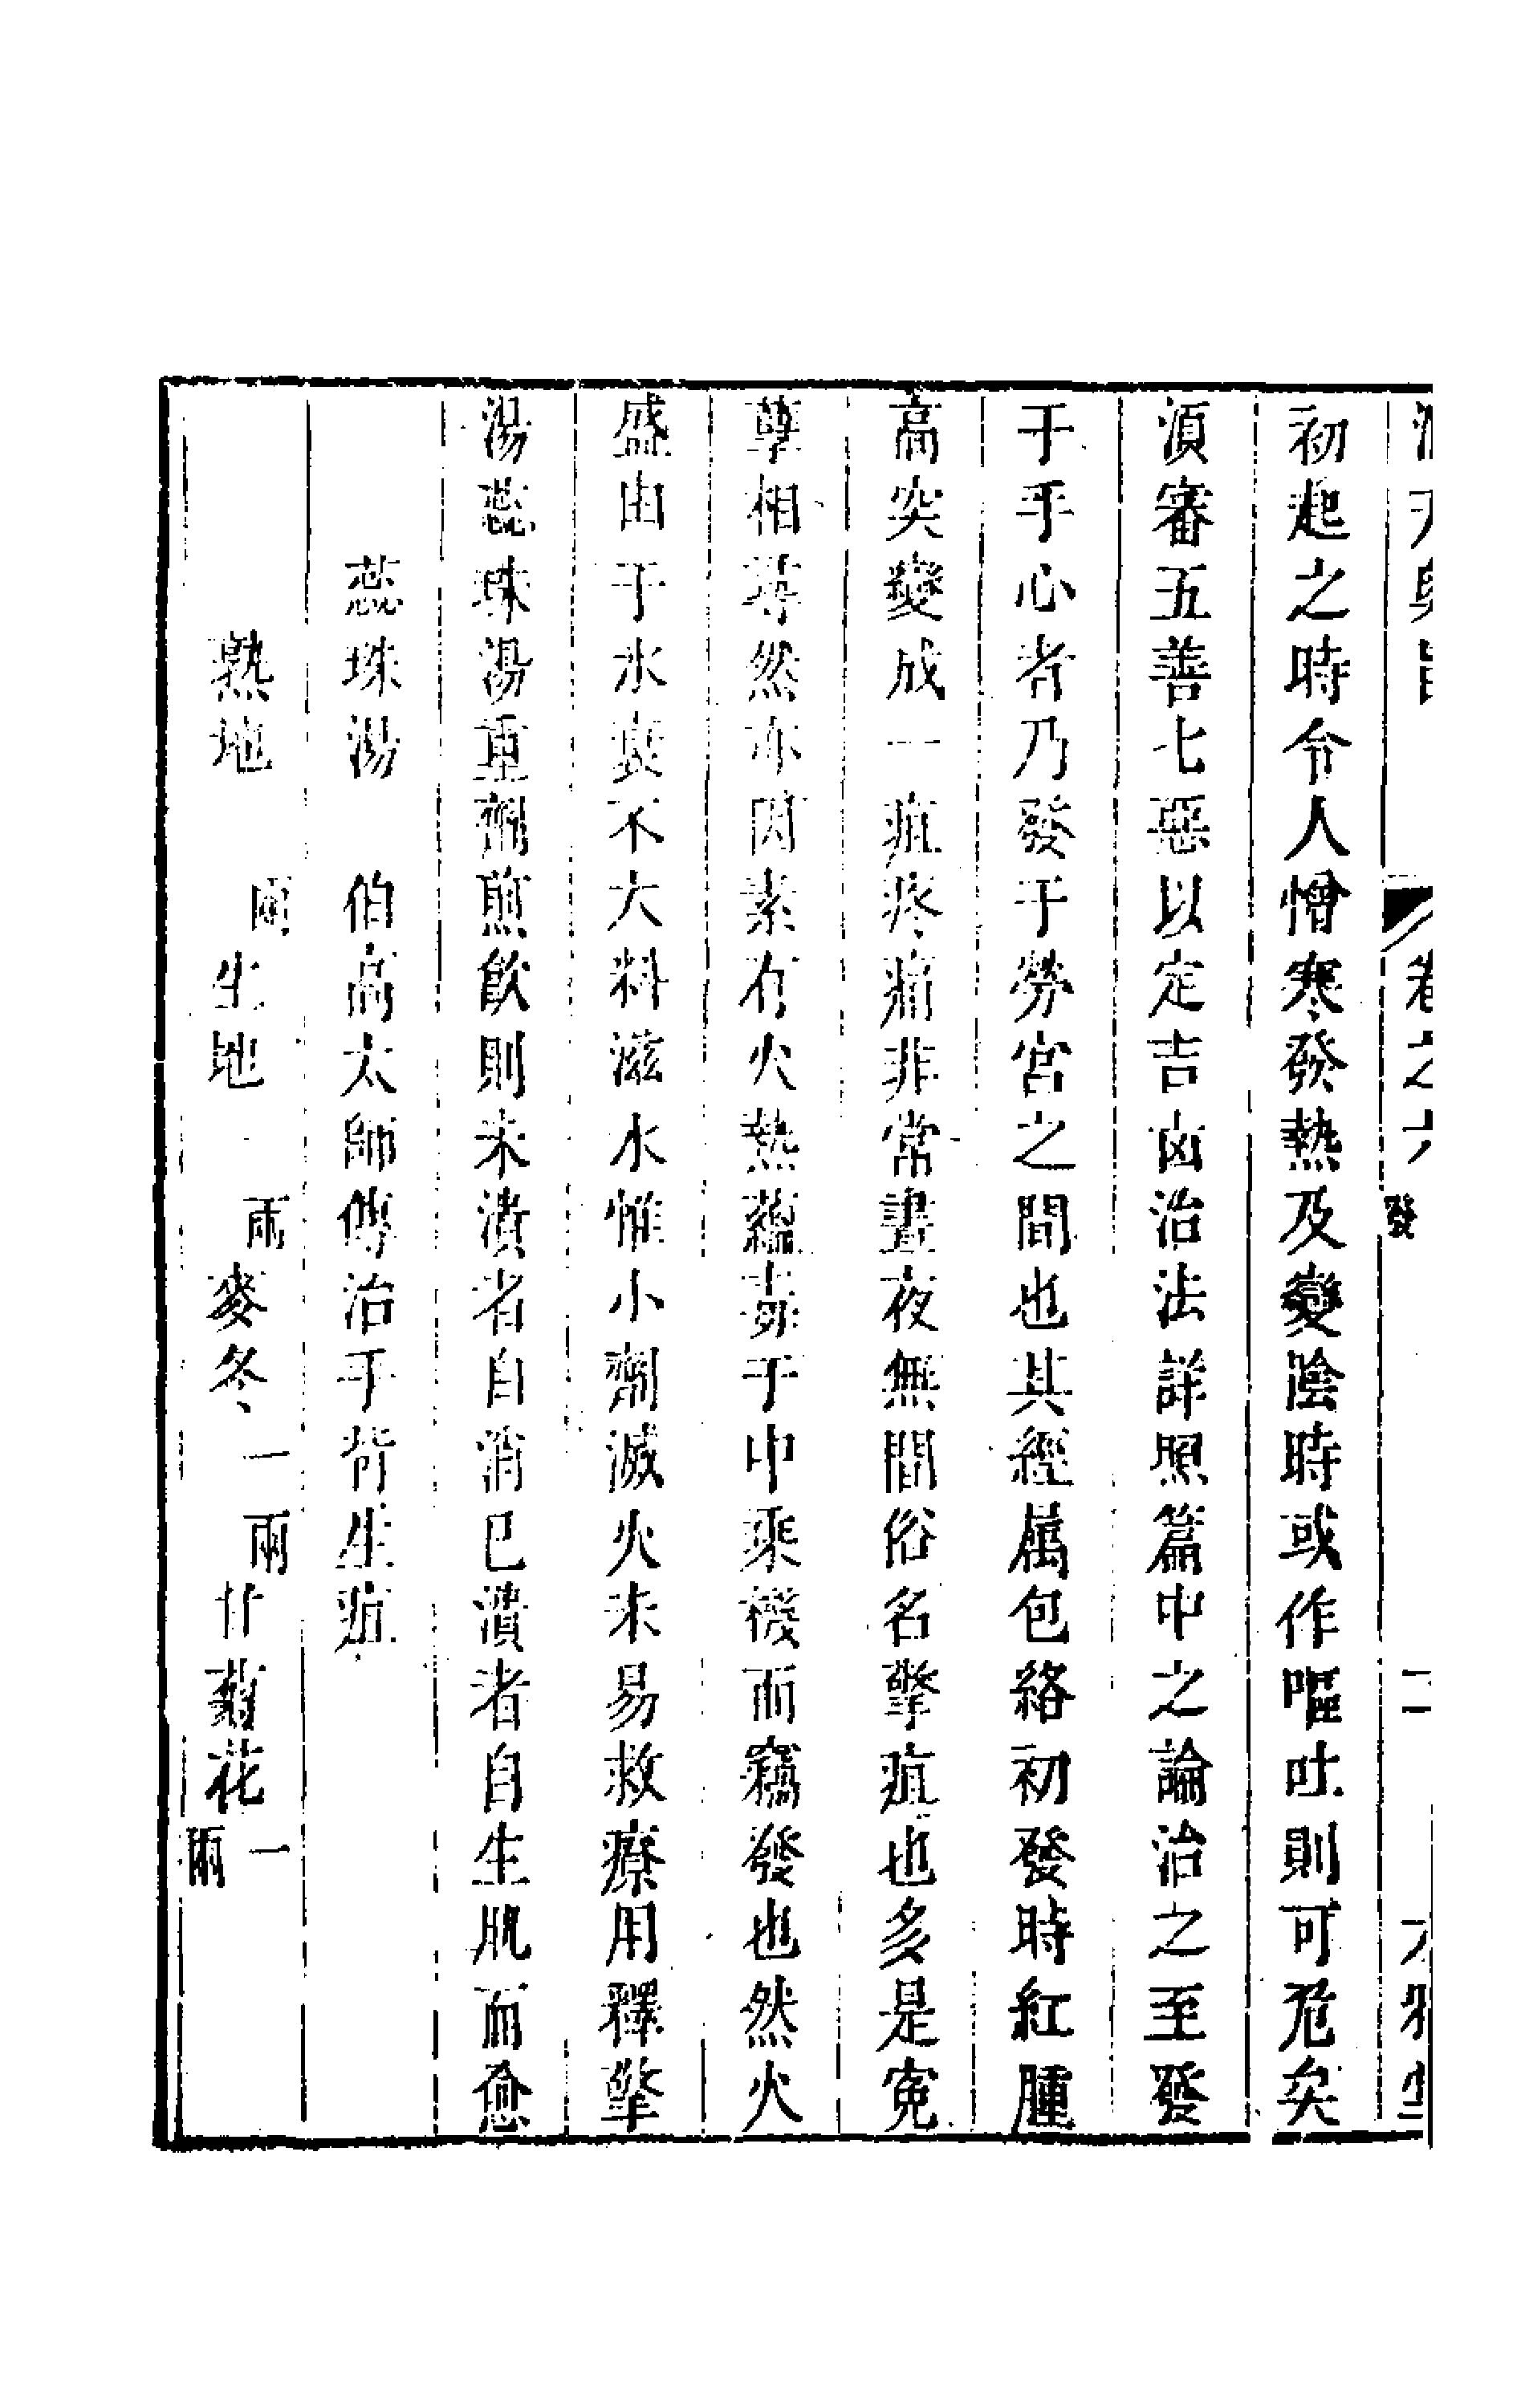 卷之六 發
初起之時令人憎寒發熱及變陰時或作嘔吐則可危矣
湏審五善七惡以定吉凶治法詳照篇中之論治之至發
于手心者乃發于勞宮之間也其經属包絡初發時紅腫
高突變成一疽疼痛非常晝夜無間俗名擎疽也多是寃
孽相尋然亦因素有火熱蘊毒于中乘機而竊發也然火
盛由于水衰不大料滋水惟小劑滅火未易救療用釋擎
湯蕊珠湯重劑煎飲則未潰者自消已潰者自生肌而愈
蕊珠湯　伯高太師傳治手背生疽
熟地　兩生地　兩麥冬一兩甘菊花一兩